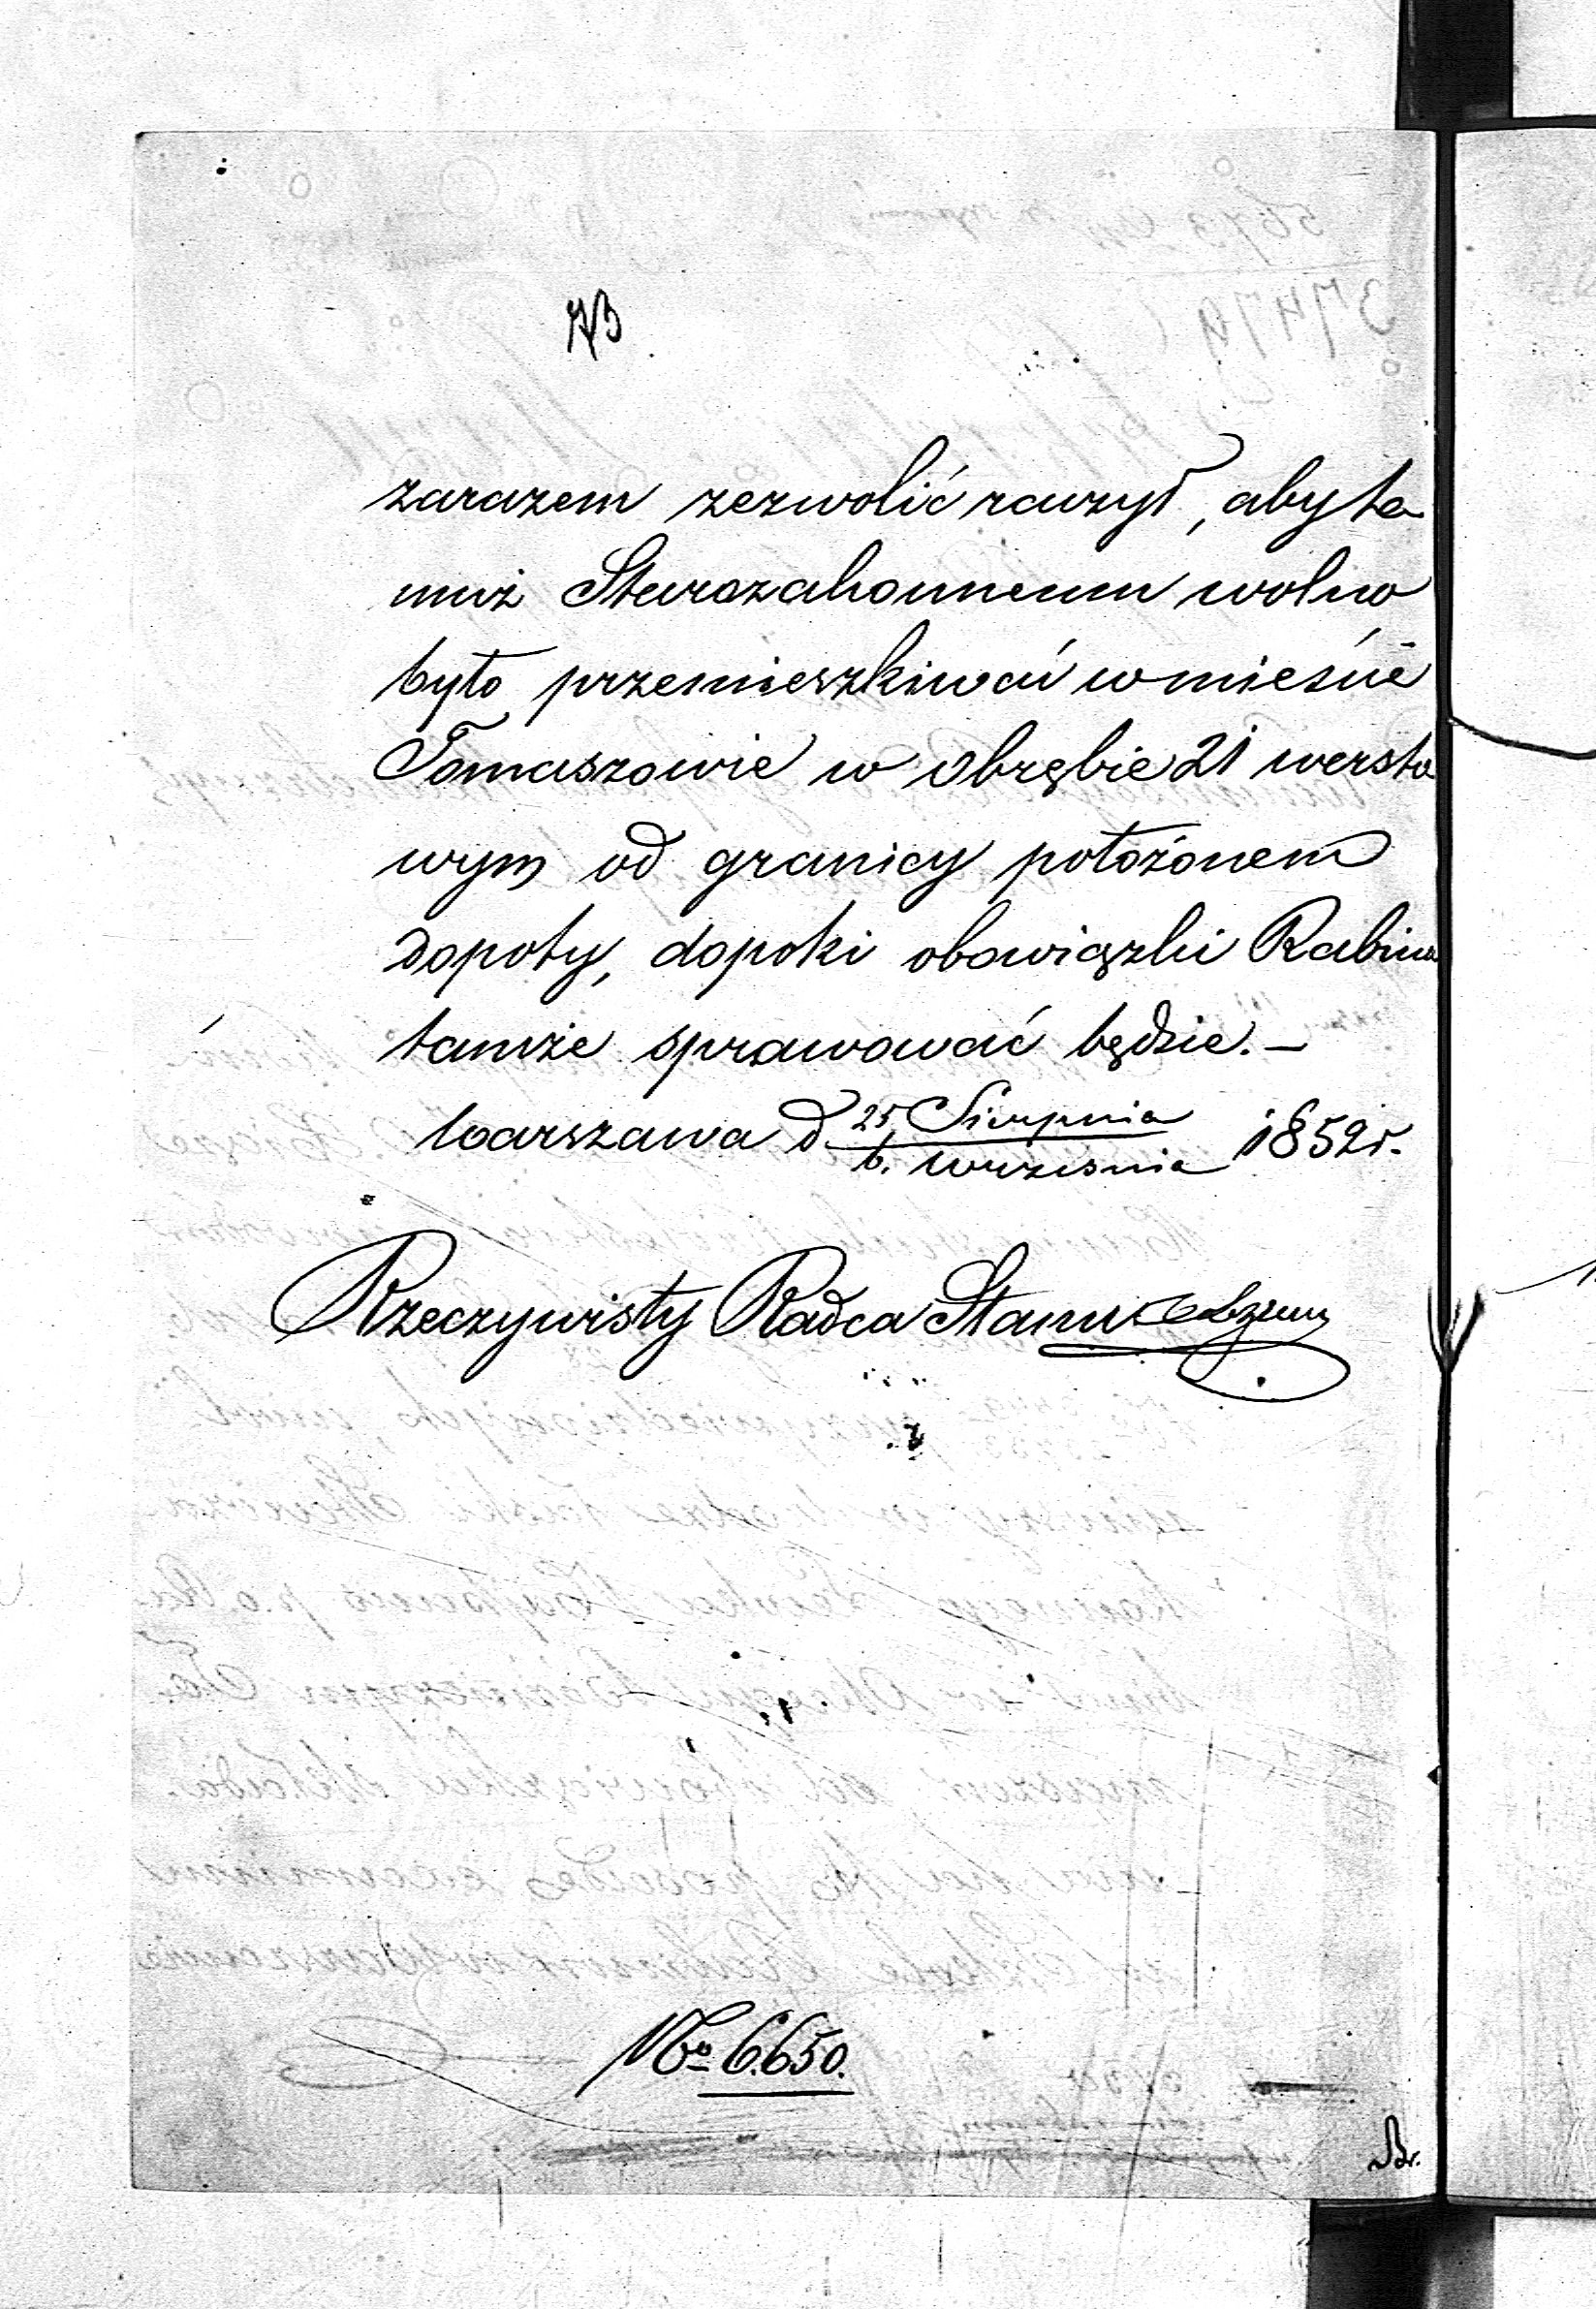 zarazem zezwolić raczył, aby te
muż Starozakonnemu wolno
było przemieszkiwać w mieście
Tomaszowie w obrębie 21 wersto
wym od granicy położonem
dopoty, dopoki obowiązki Rabina
tamże sprawować będzie.—
Warszawa d 25 Sierpnia / 6. Września 1852 r.
Rzeczywisty Radca Stanu
No 6.650.